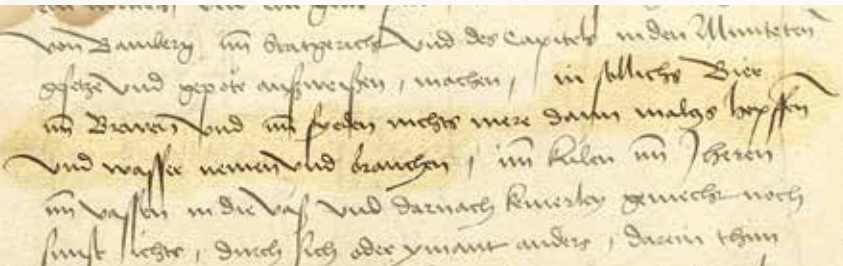 von Bamberg im Statgericht vnd des Capitels in den Munteten
gesetze vnd gepote außweisen, machen, in sollichs Bier
im Brawen vnd im syeden nichts mere dann malcz hopffen
vnd wasser nemen vnd brauchen, im kulen im heren
im vassen in die Vaß vnd darnach keinerley gemecht noch
sunst ichts, durch sich oder ymant anders, darein thun